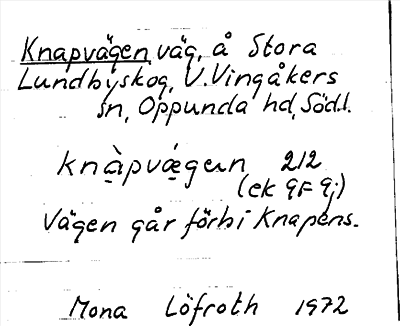 Knapvägen, väg, å Stora
Lundbyskog, V. Vingåkers
sn, Oppunda hd, Södl.
knàpvágen 212
(ek 9F 9j)
Vägen går förbi Knapens.
Mona Löfroth 1972